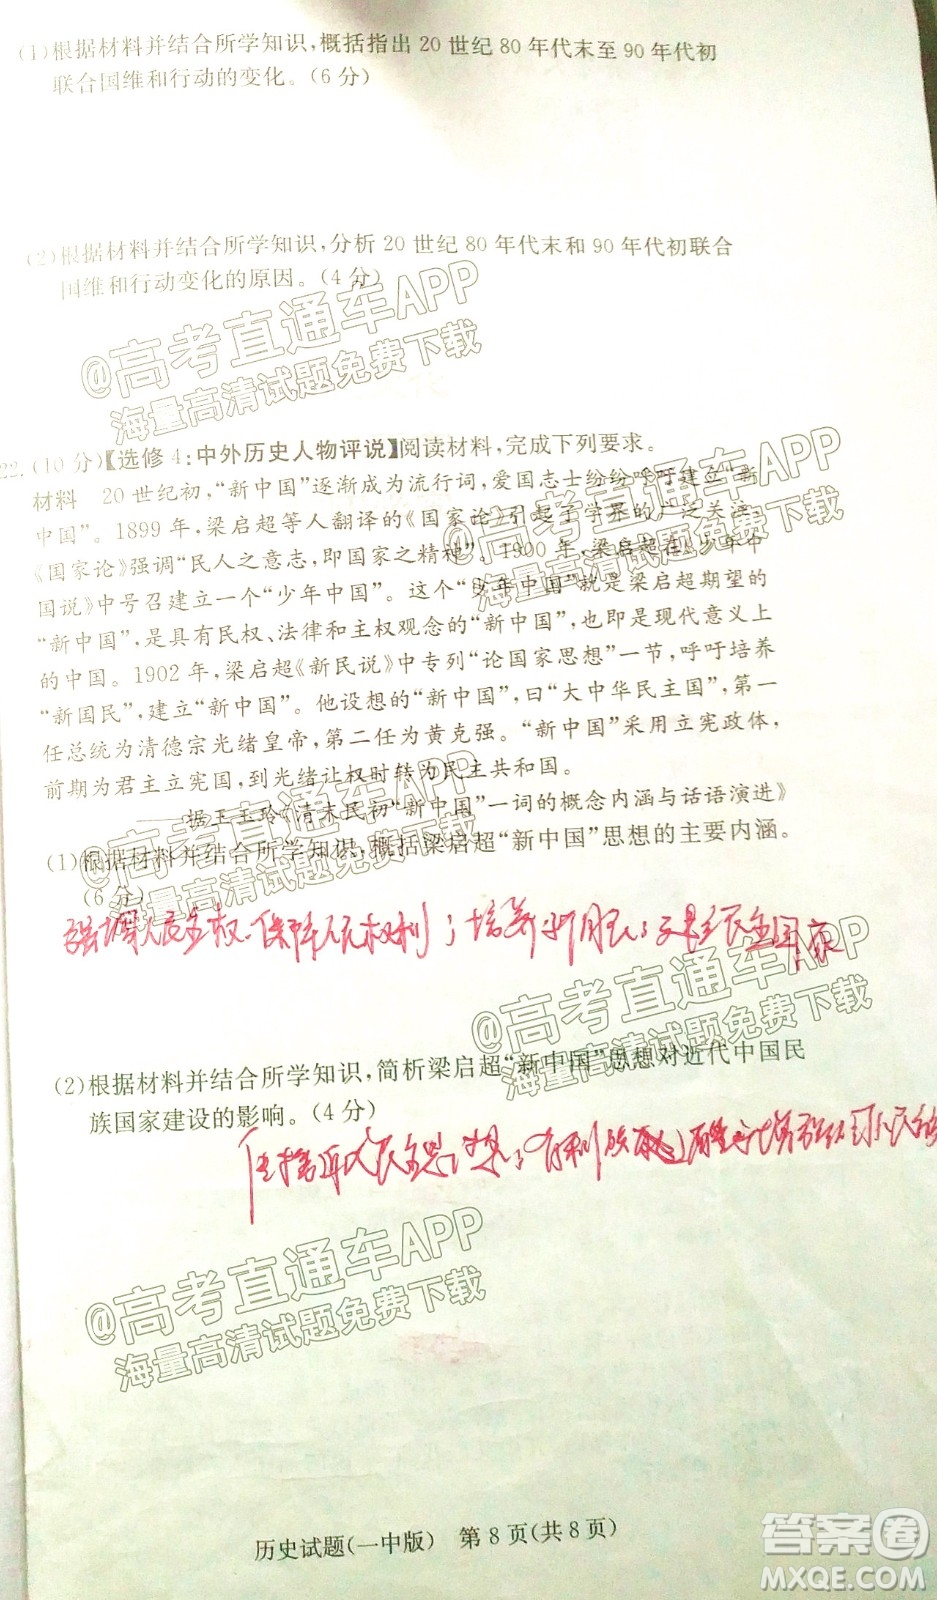 (1)根据材料并结合所学知识,概括指出20世纪80年代末至90年代初
联合国维和行动的变化。(6分)
(2)根据材料并结合所学知识,分析20世纪80年代末和90年代初联合
国维和行动变化的原因。(4分)
@高考直通车APP
海量高清试题免费下载
22.(10分)【选修4:中外历史人物评说】阅读材料,完成下列要求。
材料 20世纪初,“新中国”逐渐成为流行词,爱国志士纷纷呼吁建立“新
中国”。1899年,梁启超等人翻译的《国家论》引起了学界的广泛关注,
《国家论》强调“民人之意志,即国家之精神”。1900年,梁启超在《少年中
国说》中号召建立一个“少年中国”。这个“少年中国”就是梁启超期望的
“新中国”,是具有民权、法律和主权观念的“新中国”,也即是现代意义上
的中国。1902年,梁启超《新民说》中专列“论国家思想”一节,呼吁培养
“新国民”,建立“新中国”。他设想的“新中国”,曰“大中华民主国”,第一
任总统为清德宗光绪皇帝,第二任为黄克强。“新中国”采用立宪政体,
前期为君主立宪国,到光绪让权时转为民主共和国。
——据王玉玲《清末民初“新中国”一词的概念内涵与话语演进》
@高考直通车APP
海量高清试题免费下载
(1)根据材料并结合所学知识,概括梁启超“新中国”思想的主要内涵。
(6分)
保障人民权利;培养新国民;
@高考直通车APP
海量高清试题免费下载
(2)根据材料并结合所学知识,简析梁启超“新中国”思想对近代中国民
族国家建设的影响。(4分)
@高考直通车APP
海量高清试题免费下载
历史试题(一中版) 第8页(共8页)
答案卷
MXQE.COM